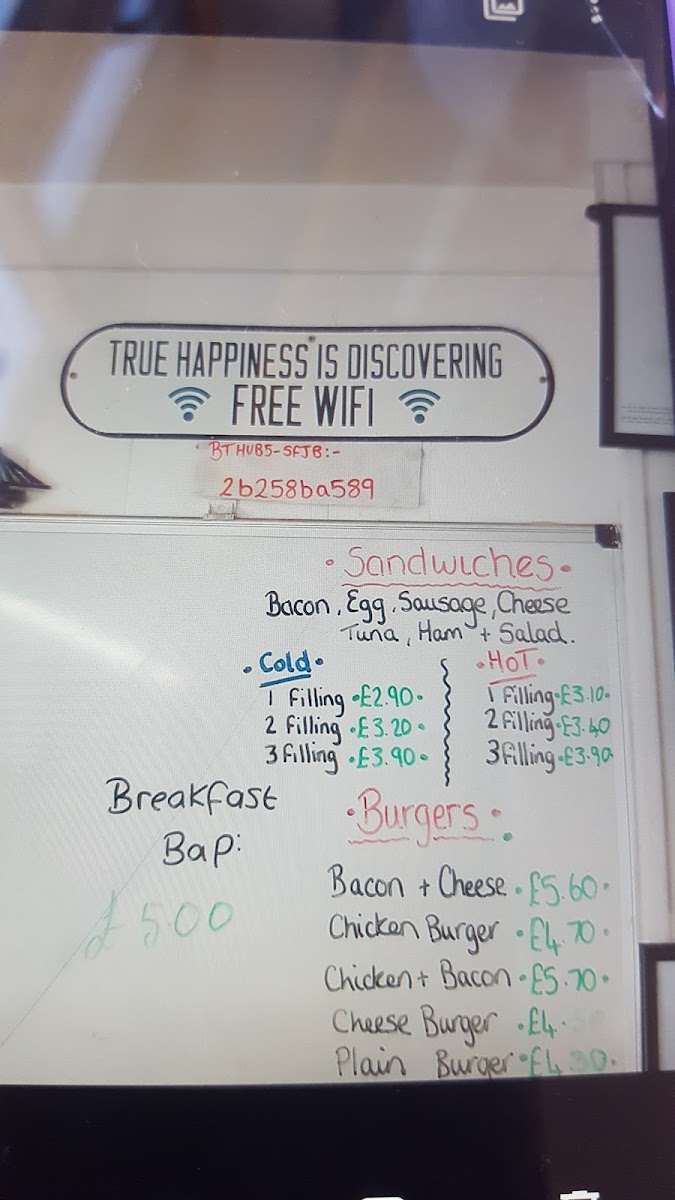 TRUE HAPPINESS IS DISCOVERING
FREE WIFI
BTHUB5-SFJB:-
2b258ba589
Sandwiches
Bacon, Egg, Sausage, Cheese
Tuna, Ham + Salad.
Cold
1 Filling £2.90
2 Filling £3.20
3 Filling £3.90
HOT
1 Filling £3.10
2 Filling £3.40
3 Filling £3.90
Breakfast
Bap:
£5.00
Burgers
Bacon + Cheese £5.60
Chicken Burger £4.70
Chicken + Bacon £5.70
Cheese Burger
Plain Burger